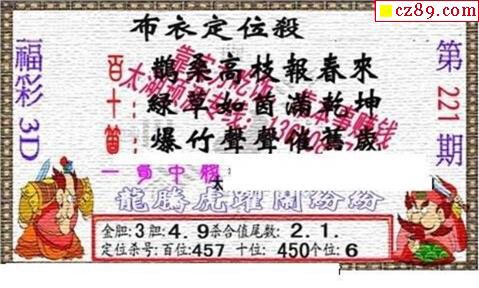 cz89.com
布衣定位殺
福彩3D
第221期
百:鵲桑高枝報春來
十:緑草如茵滿乾坤
個:爆竹聲聲催萬歲
一負中釋:
龍騰虎躍鬧紛紛
金胆:3胆:4.9杀合值尾数:2.1.
定位杀号:百位:457 十位:450个位:6